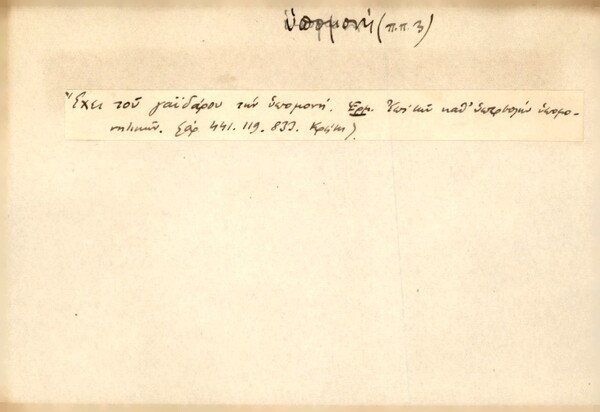 ὑπομονή (π.π. 3)
Ἔχει τοῦ γαϊδάρου τὴν ὑπομονή. Ἑρμ. Ἐπὶ τῶν καθ' ὑπερβολὴν ὑπομο-
νητικῶν. (ἀρ. 441. 119. 833. Κρήτη)